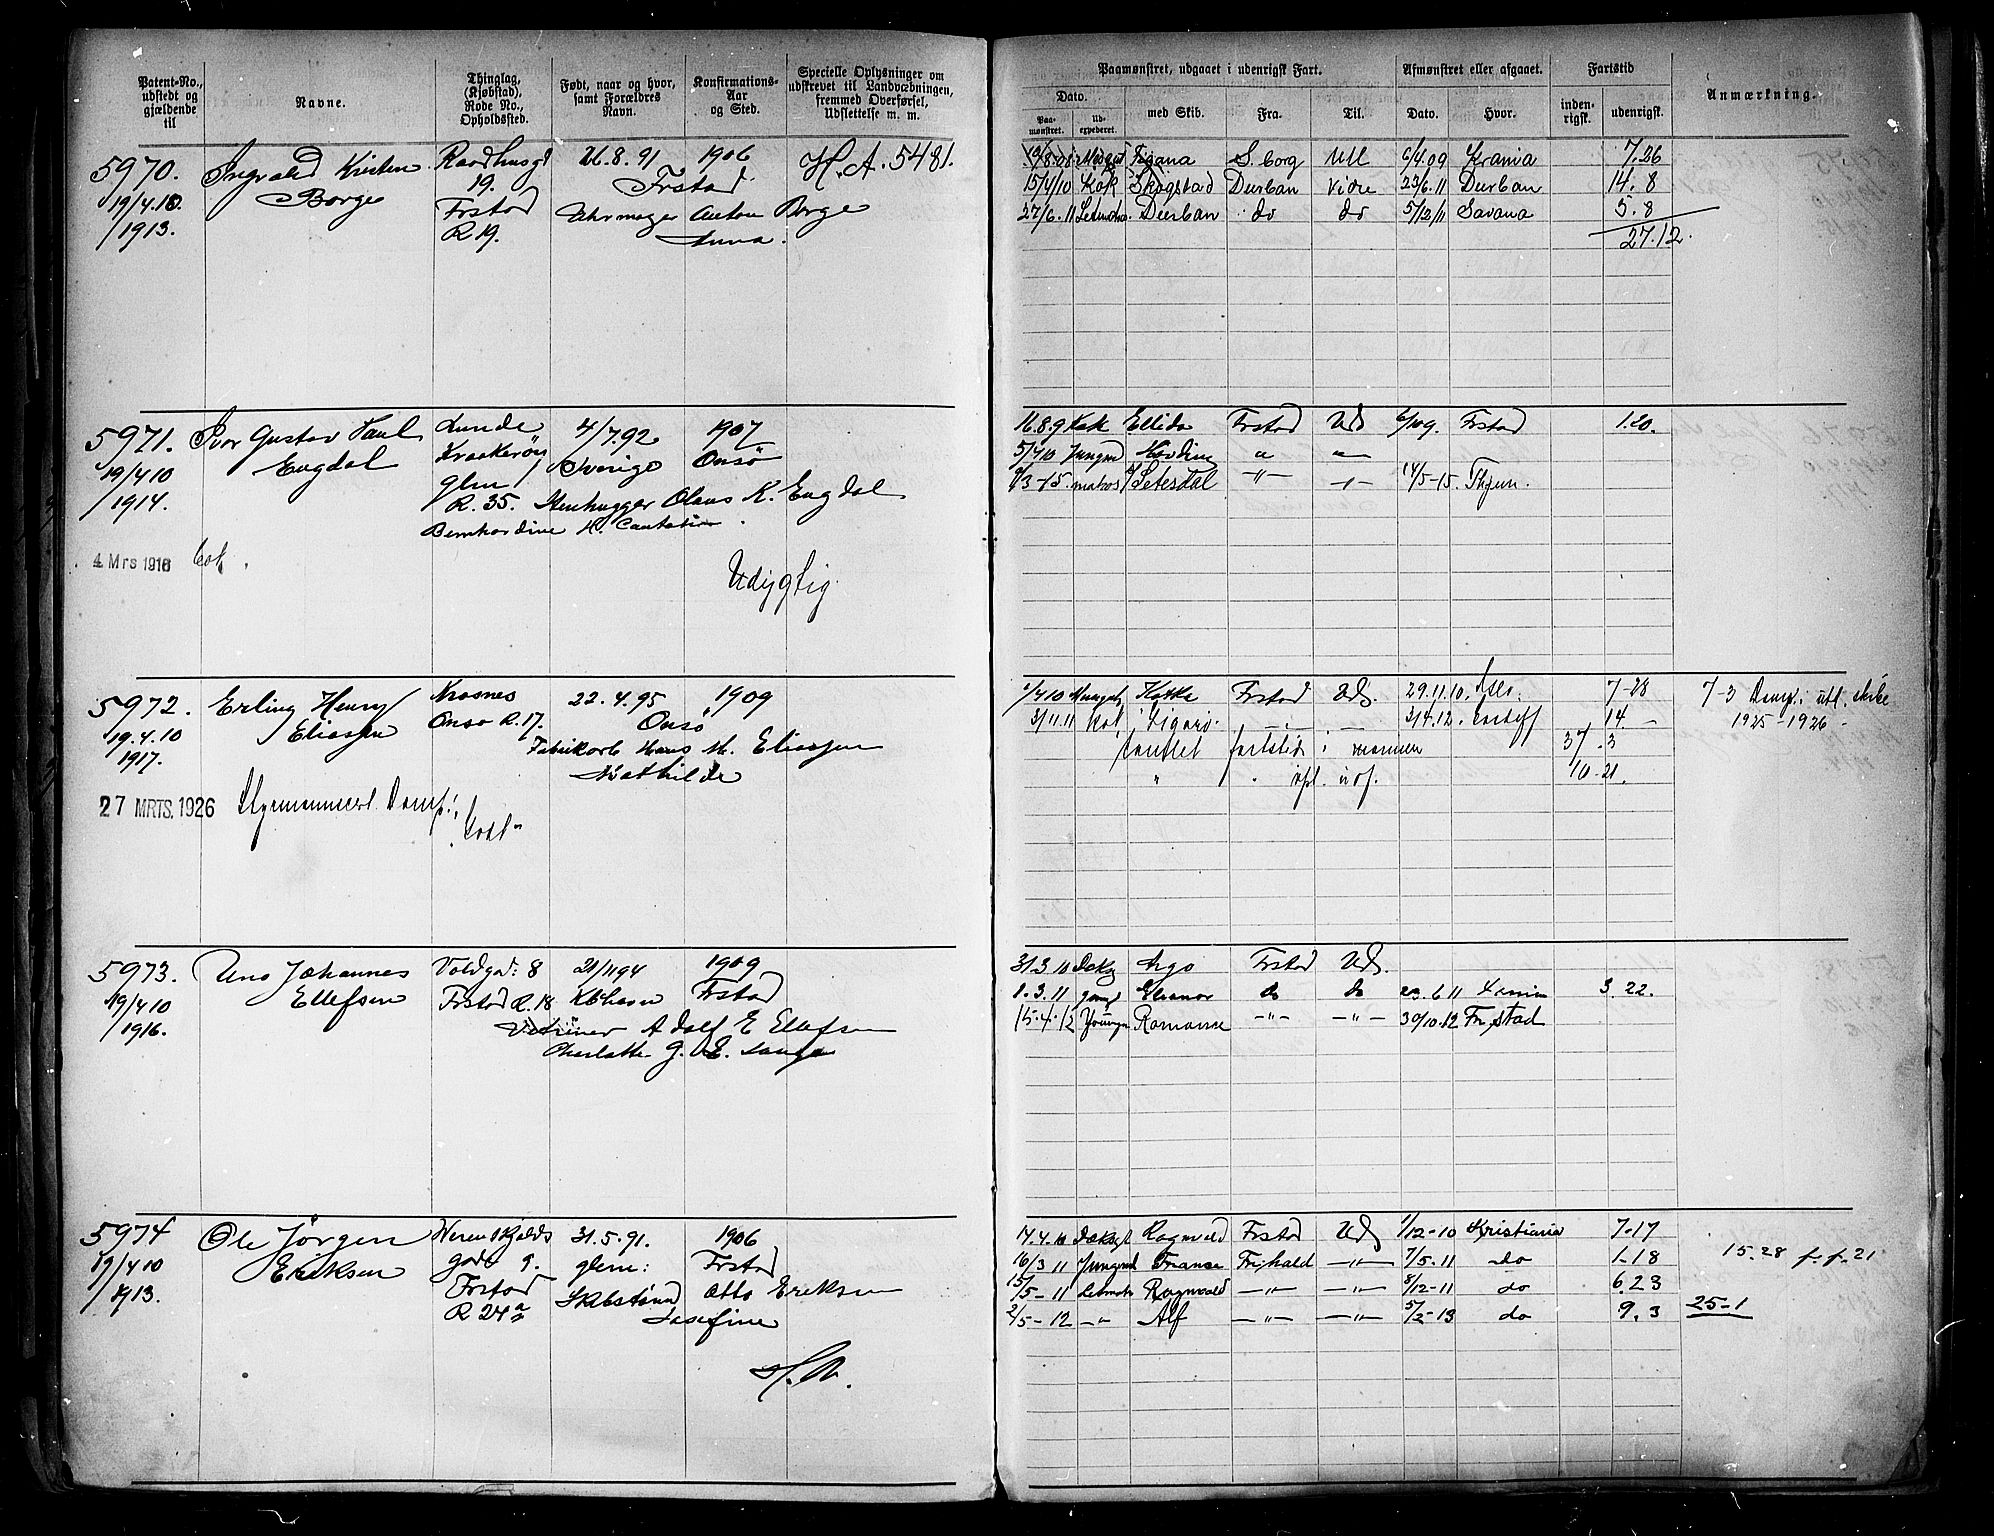 Patent-No., udstedt og gjældende til
Navne.
Thinglag, (Kjøbstad), Rode No., Opholdssted.
Født, naar og hvor, samt Forældres Navn.
Konfirmations-Aar og Sted.
Specielle Oplysninger om udskrevet til Landvæbningen, fremmed Overførsel, Udslettelse m. m.
Paamønstret, udgaaet i udenrigsk Fart.
Dato.
Paa-mønstret.
Ud-expederet.
med Skib.
Fra.
Til.
Afmønstret eller afgaaet.
Dato.
Hvor.
Fartstid
inden-rigsk.
udenrigsk.
Anmærkning.
5970. Ingvald Kristen Raadhusgd 26.8.91 1906 H.A. 5481.
19/4.10. Borge 19. Frstad
/1913. Frstad Uhrmager Anton Borge
R 19. Anna.
19/8.08 Tijana S.borg Ull 6/4.09 Krania 7.26
15/4/10 Kok Skogstad Durban Vidre 23/6.11 Durban 14.8
27/6.11 Letmatr. Durban do do 5/12/11 Savana 5.8
27.12.
5971. Ivor Gustav Paul Lunde 4/7.92 1907
19/4 10 Engdal Kraakerøy Sverige Onsø
/1914. glem
R. 35. Stenhugger Olaus K. Engdal
Bernhardine M.
4 Mrs 1916
Udygtig
16.8.9 Kok Ellida Frstad Uds 6/10 9. Frstad 1.20.
5/4 10 Jungmd Hövding " "
3-15. matros Setesdal -"- -"- 14/5-15. Thjem.
5972. Erling Henry Krosnes 22.4.95 1909
19.4.10 Eliassen Onsø R.17. Onsø
1917. Fabrikarb Hans M. Eliassen
Mathilde
27 MRTS. 1926 Styrmannscert. Damp.
/4 10 Kakka Frstad Uds. 29.11.10. 7-28
3/11.11 Kok Figaro - - 3/4.12. Cardiff 14 -
fartstid i marinen 37.3
" " 10-21.
7-3 Damp. i utl. skibe
1925-1926 -
5973. Uno Johannes Voldgad: 8 21/11 94 1909
19/4 10 Ellefsen Frstad R.18 Kbhavn Frstad
/1916. Vetrinær Adolf E Ellefsen
Charlotte G. E. Lange
31.3.10 Dekg Argo Frstad Uds.
1.3.11 Eleanor do do 23.6.11 3.22.
15.4.12 Youngm Romanoe -"- -"- 30/10.12 Fr.stad
5974 Ole Jörgen Werenskjolds 31.5.91. 1906
19/4 10 Eriksen gade 9. glem: Frstad
/1913. Frstad Otto Eriksen
R 24 Josefine
H.A.
14.4.10 Deksgt Ragnvald Frstad Uds 1/12-10 Kristiania 7-17
16/3 11 Jungmd Franse Fr.hald -"- 7/5-11 do 1-18
15/5-11 Letmatr Ragnvald -"- -"- 8/12-11 do 6.23
2/5-12 -"- Alf -"- -"- 5/2-13 do 9.3
15.28 f.f.21
25-1